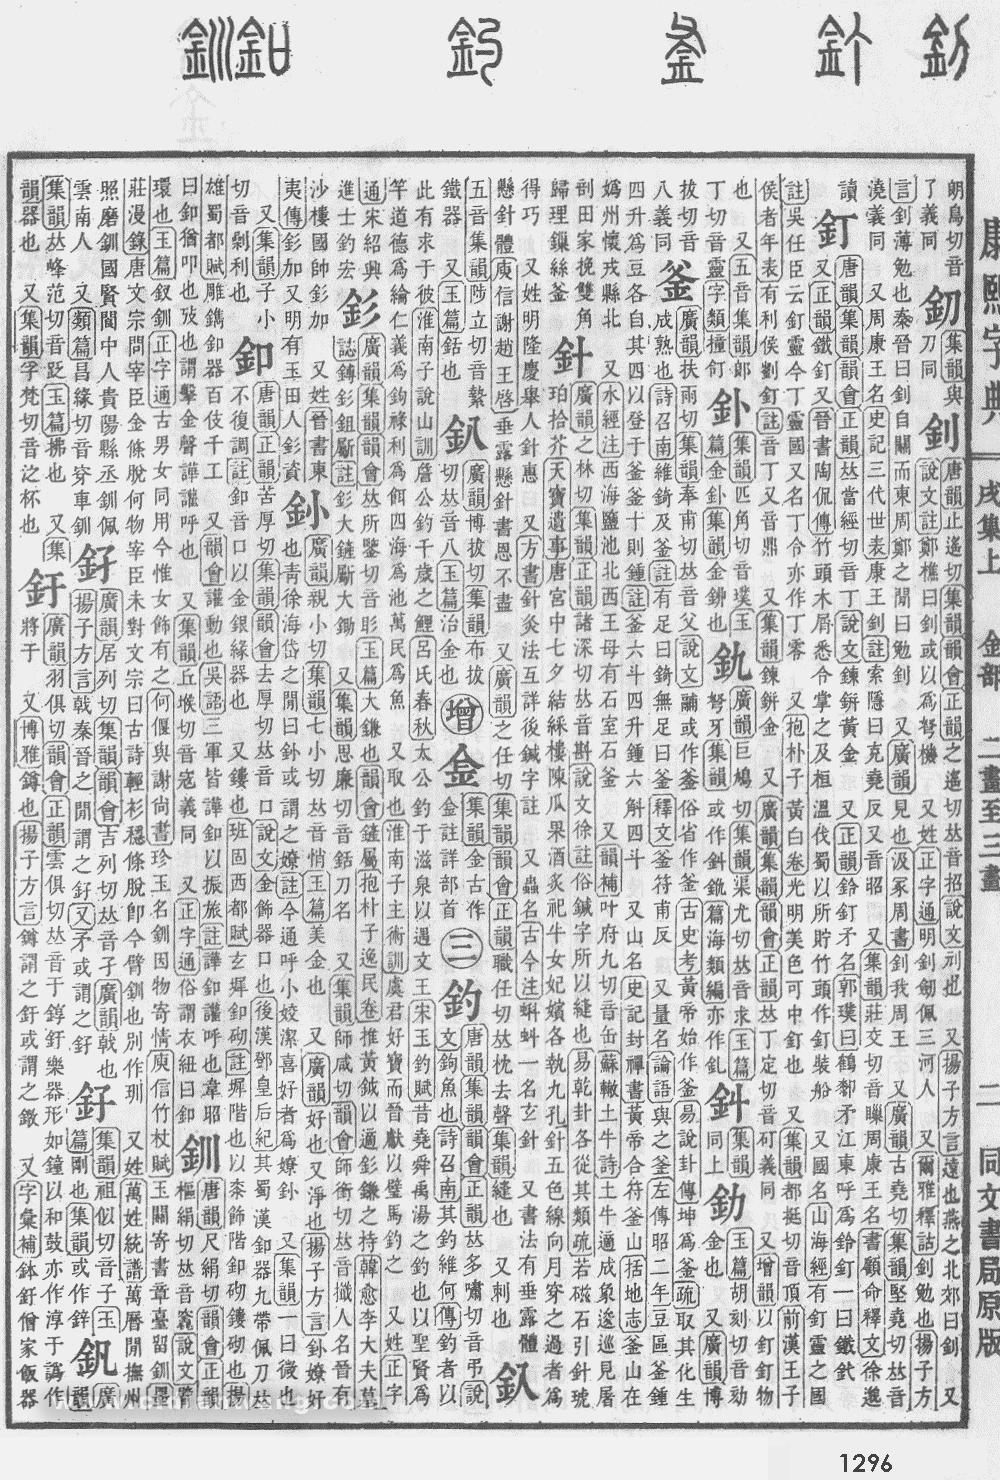 康熙字典 戌集上 金部 二畫至三畫 二 同文書局原版
朗鳥切音
了義同
釖
集韻與
刀同
釗
唐韻止遙切集韻韻會正韻之遙切𠀤音招說文刓也 又揚子方言遠也燕之北郊曰釗 又
說文註鄭樵曰釗或以爲弩機 又姓正字通明釗劒佩三河人 又爾雅釋詁釗勉也揚子方
言釗薄勉也秦晉曰釗自關而東周鄭之閒曰勉釗 又廣韻見也汲冢周書釗我周王 又廣韻古堯切集韻堅堯切𠀤音
澆義同 又周康王名史記三代世表康王釗註索隱曰克堯反又音昭 又集韻莊交切音
讀
釘
唐韻集韻韻會正韻𠀤當經切音丁說文鍊鉼黃金 又正韻鈴釘矛名郭璞曰鶴鄀矛江東呼爲鈴釘一曰鐵釴
又正韻鐵釘又晉書陶侃傳竹頭木屑悉令掌之及桓溫伐蜀以所貯竹頭作釘裝船 又國名山海經有釘靈之國
註吳任臣云釘靈今丁靈國又名丁令亦作丁零 又抱朴子黃白卷光明美色可中釘也 又集韻都挺切音頂前漢王子
侯者年表有利侯劉釘註音丁又音鼎 又集韻鍊鉼金 又廣韻集韻韻會正韻𠀤丁定切音矴義同 又增韻以釘釘物
也 又五音集韻郎
丁切音靈字類撞釘
釙
集韻匹角切音璞玉
篇金釙集韻金鉚也
釚
廣韻巨鳩切集韻渠尤切𠀤音求玉篇
弩牙集韻或作釻銚篇海類編亦作釓
釻
集韻
同上
釛
玉篇胡刻切音劾
金也 又廣韻博
拔切音
八義同
釜
廣韻扶雨切集韻奉甫切𠀤音父說文鬴或作釜俗省作釜古史考黃帝始作釜易說卦傳坤爲釜疏取其化生
成熟也詩召南維錡及釜註有足曰錡無足曰釜釋文釜符甫反 又量名論語與之釜左傳昭二年豆區釜鍾
四升爲豆各自其四以登于釜釜十則鍾註釜六斗四升鍾六斛四斗 又山名史記封禪書黃帝合符釜山括地志釜山在
嬀州懷戎縣北 又水經注西海鹽池北西王母有石室石釜 又韻補叶府九切音缶蘇轍土牛詩土牛適成象逡巡見屠
剖田家挽雙角
歸理鏁絲釜
針
廣韻之林切集韻正韻諸深切𠀤音斟說文徐註俗鍼字所以縫也易乾卦各從其類疏若磁石引針琥
珀拾芥天寶遺事唐宮中七夕結綵樓陳瓜果酒炙祀牛女妃嬪各執九孔針五色線向月穿之過者爲
得巧 又姓明隆慶舉人針惠 又方書針灸法互詳後鍼字註 又蟲名古今注蝌蚪一名玄針 又書法有垂露體
懸針體庾信謝趙王啓垂露懸針書恩不盡 又廣韻之任切集韻韻會正韻職任切𠀤枕去聲集韻縫也 又刺也
釞
五音集韻陟立切音縶
鐵器 又玉篇銛也
釟
廣韻博拔切集韻布拔
切𠀤音八玉篇治金也
增
金
集韻金古作
金註詳部首
三
釣
唐韻集韻韻會正韻𠀤多嘯切音弔說
文鉤魚也詩召南其釣維何傳釣者以
此有求于彼淮南子說山訓詹公釣千歲之鯉呂氏春秋太公釣于滋泉以遇文王宋玉釣賦昔堯舜禹湯之釣也以聖賢爲
竿道德爲綸仁義爲鉤祿利爲餌四海爲池萬民爲魚 又取也淮南子主術訓虞君好寶而晉獻以璧馬釣之 又姓正字
通宋紹興
進士釣宏
釤
廣韻集韻韻會𠀤所鑒切音𢒉玉篇大鎌也韻會鏟屬抱朴子逸民卷推黃鉞以適釤鎌之持韓愈李大夫墓
誌鎛釤鉏斸註釤大鏟斸大鋤 又集韻思廉切音銛刀名 又集韻師咸切韻會師銜切𠀤音攕人名晉有
沙樓國帥釤加 又姓晉書東
夷傳釤加又明有玉田人釤資
釥
廣韻親小切集韻七小切𠀤音悄玉篇美金也 又廣韻好也又淨也揚子方言釥嫽好
也靑徐海岱之閒曰釥或謂之嫽註今通呼小姣潔喜好者爲嫽釥 又集韻一曰微也
又集韻子小
切音剿利也
釦
唐韻正韻苦厚切集韻韻會去厚切𠀤音口說文金飾器口也後漢鄧皇后紀其蜀漢釦器九帶佩刀𠀤
不復調註釦音口以金銀緣器也 又鏤也班固西都賦玄墀釦砌註墀階也以桼飾階釦砌鏤砌也揚
雄蜀都賦雕鐫釦器百伎千工 又韻會讙動也吳語三軍皆譁釦以振旅註譁釦讙呼也韋昭
曰釦猶叩也攷也謂擊金聲譁讙呼也 又集韻丘堠切音寇義同 又正字通俗謂衣紐曰釦
釧
唐韻尺絹切韻會正韻
樞絹切𠀤音竁說文臂
環也玉篇釵釧正字通古男女同用今惟女飾有之何偃與謝尚書珍玉名釧因物寄情庾信竹杖賦玉關寄書章臺留釧墨
莊漫錄唐文宗問宰臣金條脫何物宰臣未對文宗曰古詩輕衫穩條脫卽今臂釧也別作㻔 又姓萬姓統譜萬曆閒撫州
照磨釧國賢閬中人貴陽縣丞釧佩
雲南人 又類篇昌緣切音穿車釧
釨
廣韻居列切集韻韻會吉列切𠀤音孑廣韻戟也
揚子方言戟秦晉之閒謂之釨又矛或謂之釨
釨
集韻祖似切音子玉
篇剛也集韻或作鋅
釩
廣
韻
集韻𠀤峰范切音眨玉篇拂也 又集
韻器也 又集韻孚梵切音泛杯也
釪
廣韻羽俱切韻會正韻雲俱切𠀤音于錞釪樂器形如鐘以和鼓亦作淳于譌作
將于 又博雅鐏也揚子方言鐏謂之釪或謂之鐓 又字彙補鉢釪僧家飯器
1296